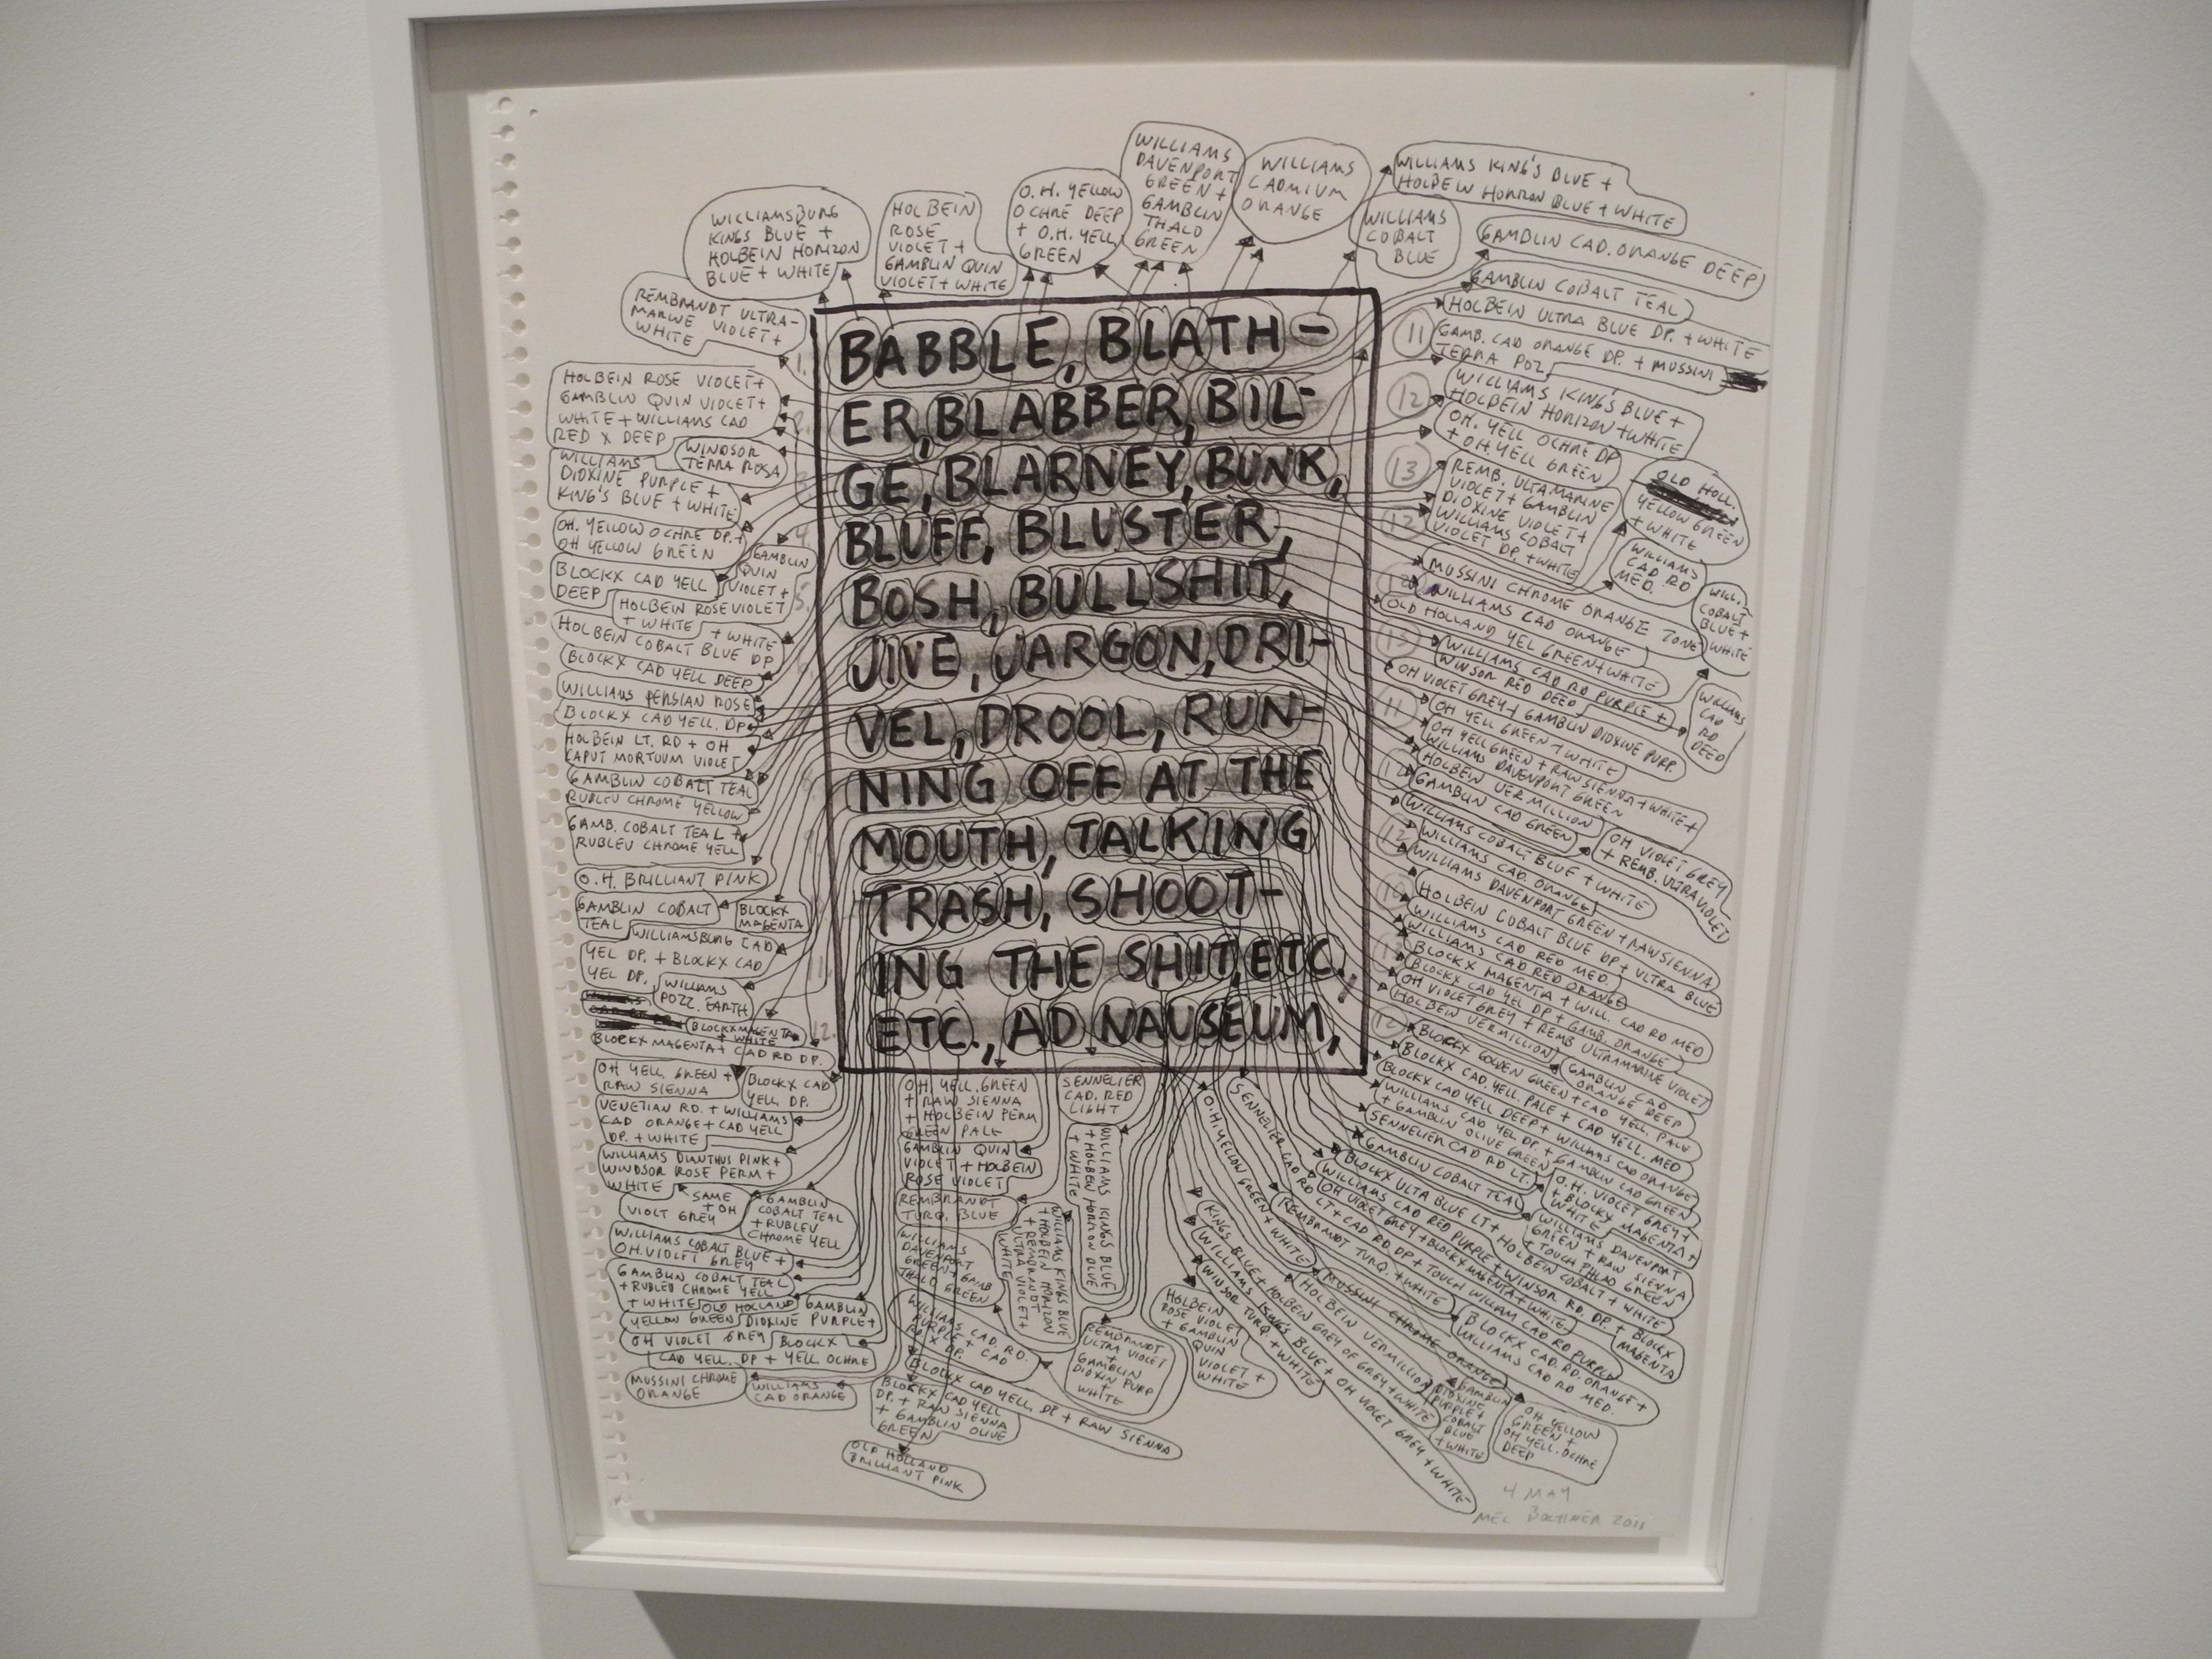 WILLIAMSBURG
KING'S BLUE +
HOLBEIN HORIZON
BLUE + WHITE
HOLBEIN
ROSE
VIOLET +
GAMBLIN QUIN
VIOLET + WHITE
O.H. YELLOW
OCHRE DEEP
+ O.H. YELL
GREEN
WILLIAMS
DAVENPORT
GREEN +
GAMBLIN
THALO
GREEN
WILLIAMS
CADMIUM
ORANGE
WILLIAMS KING'S BLUE +
HOLBEIN HORIZON BLUE + WHITE
WILLIAMS
COBALT
BLUE
GAMBLIN CAD. ORANGE DEEP
REMBRANDT ULTRA-
MARINE VIOLET +
WHITE
BABBLE, BLATH-
ER, BLABBER, BIL-
GE, BLARNEY, BUNK,
BLUFF, BLUSTER,
BOSH, BULLSHIT,
JIVE, JARGON, DRI-
VEL, DROOL, RUN-
NING OFF AT THE
MOUTH, TALKING
TRASH, SHOOT-
ING THE SHIT, ETC.,
ETC., AD NAUSEUM,
HOLBEIN ROSE VIOLET +
GAMBLIN QUIN VIOLET +
WHITE + WILLIAMS CAD
RED X DEEP
WINDSOR
TERRA ROSA
WILLIAMS
DIOXINE PURPLE +
KING'S BLUE + WHITE
OH. YELLOW OCHRE DP. +
OH YELLOW GREEN
GAMBLIN
QUIN
VIOLET +
HOLBEIN ROSE VIOLET
+ WHITE
BLOCKX CAD YELL
DEEP
+ WHITE
HOLBEIN COBALT BLUE DP
BLOCKX CAD YELL DEEP
WILLIAMS PERSIAN ROSE
BLOCKX CAD YELL. DP
HOLBEIN LT. RD + OH
CAPUT MORTUUM VIOLET
GAMBLIN COBALT TEAL
RUBLEV CHROME YELLOW
GAMB. COBALT TEAL +
RUBLEV CHROME YELL
O.H. BRILLIANT PINK
GAMBLIN COBALT
TEAL
BLOCKX
MAGENTA
WILLIAMSBURG CAD
YEL DP. + BLOCKX CAD
YEL DP.
WILLIAMS
POZZ. EARTH
BLOCKX MAGENTA
+ WHITE
BLOCKX MAGENTA + CAD RD DP.
OH YELL. GREEN +
RAW SIENNA
BLOCKX CAD
YELL DP.
VENETIAN RD. + WILLIAMS
CAD ORANGE + CAD YELL
DP. + WHITE
WILLIAMS DIANTHUS PINK +
WINDSOR ROSE PERM +
WHITE
SAME
+ OH
VIOLT GREY
GAMBLIN
COBALT TEAL
+ RUBLEV
CHROME YELL
WILLIAMS COBALT BLUE +
OH. VIOLET GREY
GAMBLIN COBALT TEAL
+ RUBLEV CHROME YELL
+ WHITE
OLD HOLLAND
YELLOW GREEN
GAMBLIN
DIOXINE PURPLE +
OH VIOLET GREY
BLOCKX
CAD YELL. DP + YELL. OCHRE
MUSSINI CHROME
ORANGE
WILLIAMS
CAD ORANGE
OH. YELL. GREEN
+ RAW SIENNA
+ HOLBEIN PERM
GREEN PALE
GAMBLIN QUIN
VIOLET + HOLBEIN
ROSE VIOLET
REMBRANDT
TURQ. BLUE
WILLIAMS
DAVENPORT
GREEN + GAMB
THALO GREEN
WILLIAMS CAD. RD.
PURPLE + CAD
RD X DP.
BLOCKX CAD YELL. DP + RAW SIENNA
BLOCKX CAD YELL
DP. + RAW SIENNA
+ GAMBLIN OLIVE
GREEN
OLD HOLLAND
BRILLIANT PINK
SENNELIER
CAD. RED
LIGHT
WILLIAMS KINGS BLUE
+ HOLBEIN HORIZON BLUE
+ WHITE
WILLIAMS KINGS BLUE
+ HOLBEIN HORIZON
+ REMBRANDT
ULTRA VIOLET +
WHITE
REMBRANDT
ULTRA VIOLET
+
GAMBLIN
DIOXIN PURP
+
WHITE
HOLBEIN
ROSE VIOLET
+ GAMBLIN
QUIN
VIOLET +
WHITE
GAMBLIN COBALT TEAL
HOLBEIN ULTRA BLUE DP. + WHITE
11
GAMB. CAD ORANGE DP. + MUSSINI
TERRA POZ
12
WILLIAMS KING'S BLUE +
HOLBEIN HORIZON + WHITE
OH. YELL OCHRE DP
+ OH. YELL GREEN
13
REMB. ULTAMARINE
VIOLET + GAMBLIN
DIOXINE VIOLET +
WILLIAMS COBALT
VIOLET DP. + WHITE
OLD HOLL.
YELLOW GREEN
+ WHITE
WILLIAMS
CAD RD
MED.
WILL.
COBALT
BLUE +
WHITE
MUSSINI CHROME ORANGE TONE
WILLIAMS CAD ORANGE
OLD HOLLAND YEL GREEN + WHITE
WILLIAMS CAD RD PURPLE +
WINSOR RED DEEP
WILLIAMS
CAD
RD
DEED
OH VIOLET GREY + GAMBLIN DIOXINE PURP.
OH YELL GREEN + WHITE
OH YELL GREEN + RAW SIENNA + WHITE +
WILLIAMS DAVENPORT GREEN
HOLBEIN VERMILLION
GAMBLIN CAD GREEN
OH VIOLET GREY
+ REMB. ULTRA VIOLET
WILLIAMS COBALT BLUE + WHITE
WILLIAMS CAD. ORANGE
WILLIAMS DAVENPORT GREEN + RAW SIENNA
HOLBEIN COBALT BLUE DP + ULTRA BLUE
WILLIAMS CAD RED MED.
WILLIAMS CAD RED ORANGE
BLOCKX MAGENTA + WILL. CAD RD MED
BLOCKX CAD YEL DP + GAMB. ORANGE
OH VIOLET GREY + REMB ULTRAMARINE VIOLET
HOLBEIN VERMILLION
GAMBLIN
CAD
ORANGE DEEP
BLOCKX GOLDEN GREEN + CAD YELL. PALE
BLOCKX CAD. YELL. PALE + CAD YELL. MED
BLOCKX CAD YELL DEEP + WILLIAMS CAD ORANGE
WILLIAMS CAD YEL DP + GAMBLIN CAD GREEN
+ GAMBLIN OLIVE GREEN
SENNELIER CAD RD LT.
O.H. VIOLET GREY +
+ BLOCKX MAGENTA +
WHITE
GAMBLIN COBALT TEAL
WILLIAMS DAVENPORT
GREEN + RAW SIENNA
+ TOUCH PHLAO GREEN
BLOCKX ULTA BLUE LT + HOLBEIN COBALT + WHITE
WILLIAMS CAD RED PURPLE + WINSOR RD. DP. + BLOCKX
MAGENTA
OH VIOLET GREY + BLOCKX MAGENTA + WHITE
SENNELIER CAD
RD LT + CAD RD DP + TOUCH WILLIAM CAD RD PURPLE
REMBRANDT TURQ. + WHITE
BLOCKX CAD. RD. ORANGE +
WILLIAMS CAD RD MED.
O.H. YELLOW GREEN + WHITE
MUSSINI CHROME ORANGE
HOLBEIN VERMILLION
KINGS BLUE + HOLBEIN GREY OF GREY + WHITE
WILLIAMS KING'S BLUE + OH VIOLET GREY + WHITE
WINSOR TURQ. + WHITE
GAMBLIN
DIOXINE
PURPLE +
COBALT
BLUE
+ WHITE
OH YELLOW
GREEN +
OH YELL. OCHRE
DEEP
4 MAY
MEL BOCHNER 2011